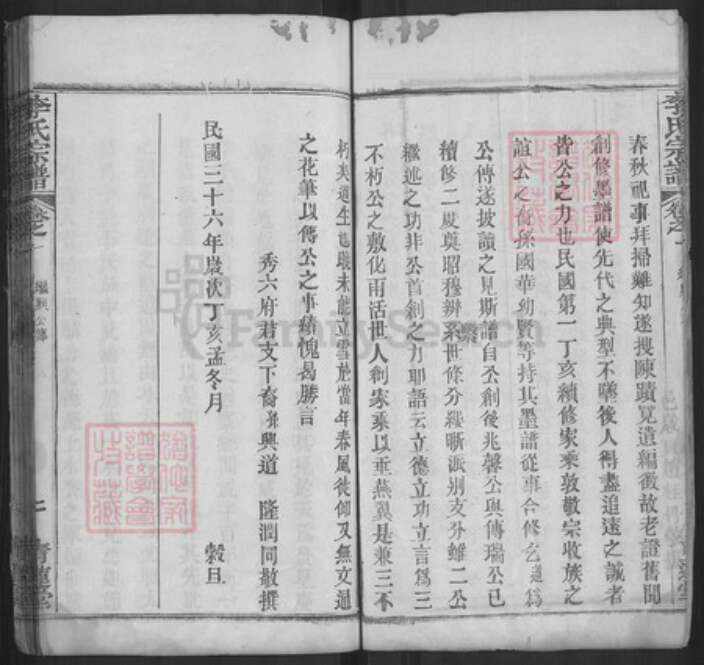 李氏宗譜
卷之一
春秋祀事拜掃難知遂搜陳蹟覓遺編徵故老證舊聞
創修墨譜使先代之典型不墜後人得盡追遠之誠者
皆公之力也民國第一丁亥續修家乘敦敬宗收族之
誼公之裔孫國華幼賢等持其墨譜從事合修乞道為
公傳遂披讀之見斯譜自公創後兆馨公與傳瑞公已
續修二度奠昭穆辨系世條分縷晰派別支分雖二公
繼述之功非公首創之力耶語云立德立功立言為三
不朽公之敷化雨活世人創家乘以垂燕翼是兼三不
朽矣道生也晚未能立雪於當年春風徒仰又無文過
之花筆以傳公之事蹟愧曷勝言
秀六府君支下裔孫興道 隆潤同敬撰
民國三十六年歲次丁亥孟冬月 穀旦
李氏宗譜
卷之一
繼興公傳
七
青蓮堂
FamilySearch